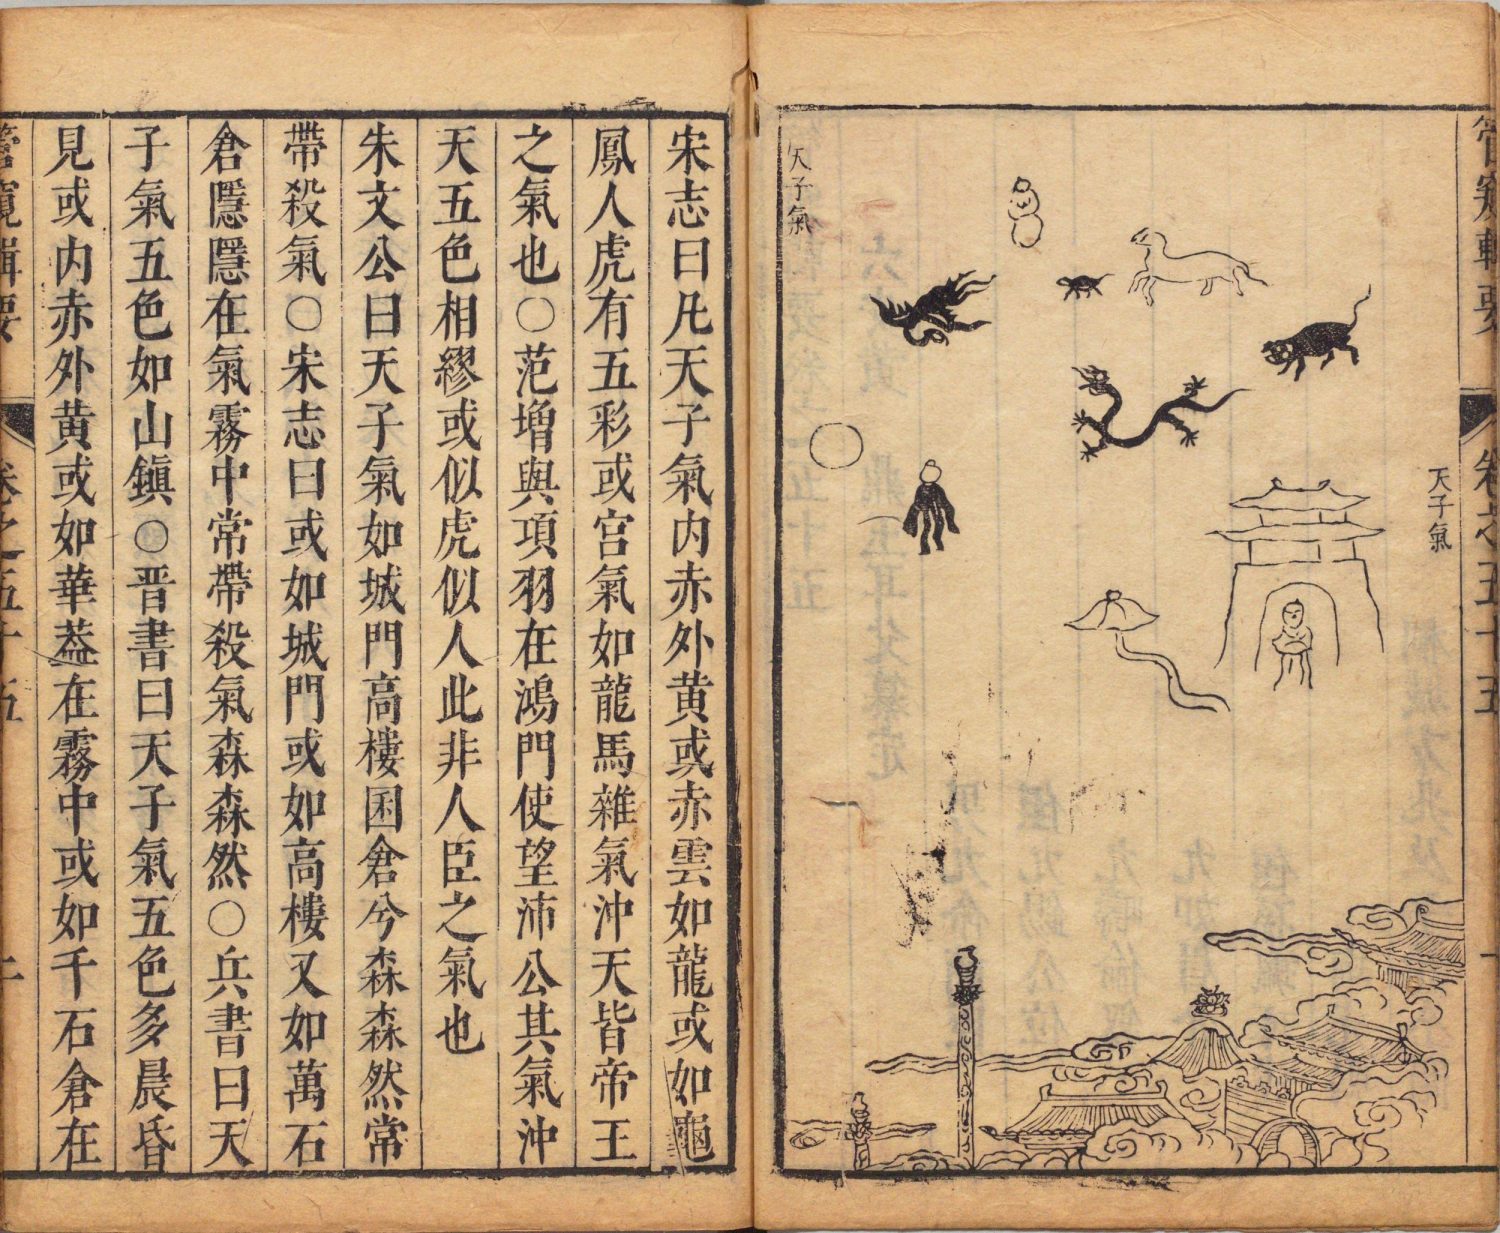 天子氣
天子氣
宋志曰凡天子氣内赤外黄或赤雲如龍或如龜
鳳人虎有五彩或宫氣如龍馬雜氣沖天皆帝王
之氣也○范增與項羽在鴻門使望沛公其氣沖
天五色相繆或似虎似人此非人臣之氣也
朱文公曰天子氣如城門高樓囷倉兮森森然常
帶殺氣○宋志曰或如城門或如高樓又如萬石
倉隱隱在氣霧中常帶殺氣森森然○兵書曰天
子氣五色如山鎮○晋書曰天子氣五色多晨昏
見或内赤外黄或如華葢在霧中或如千石倉在
卷之五十五